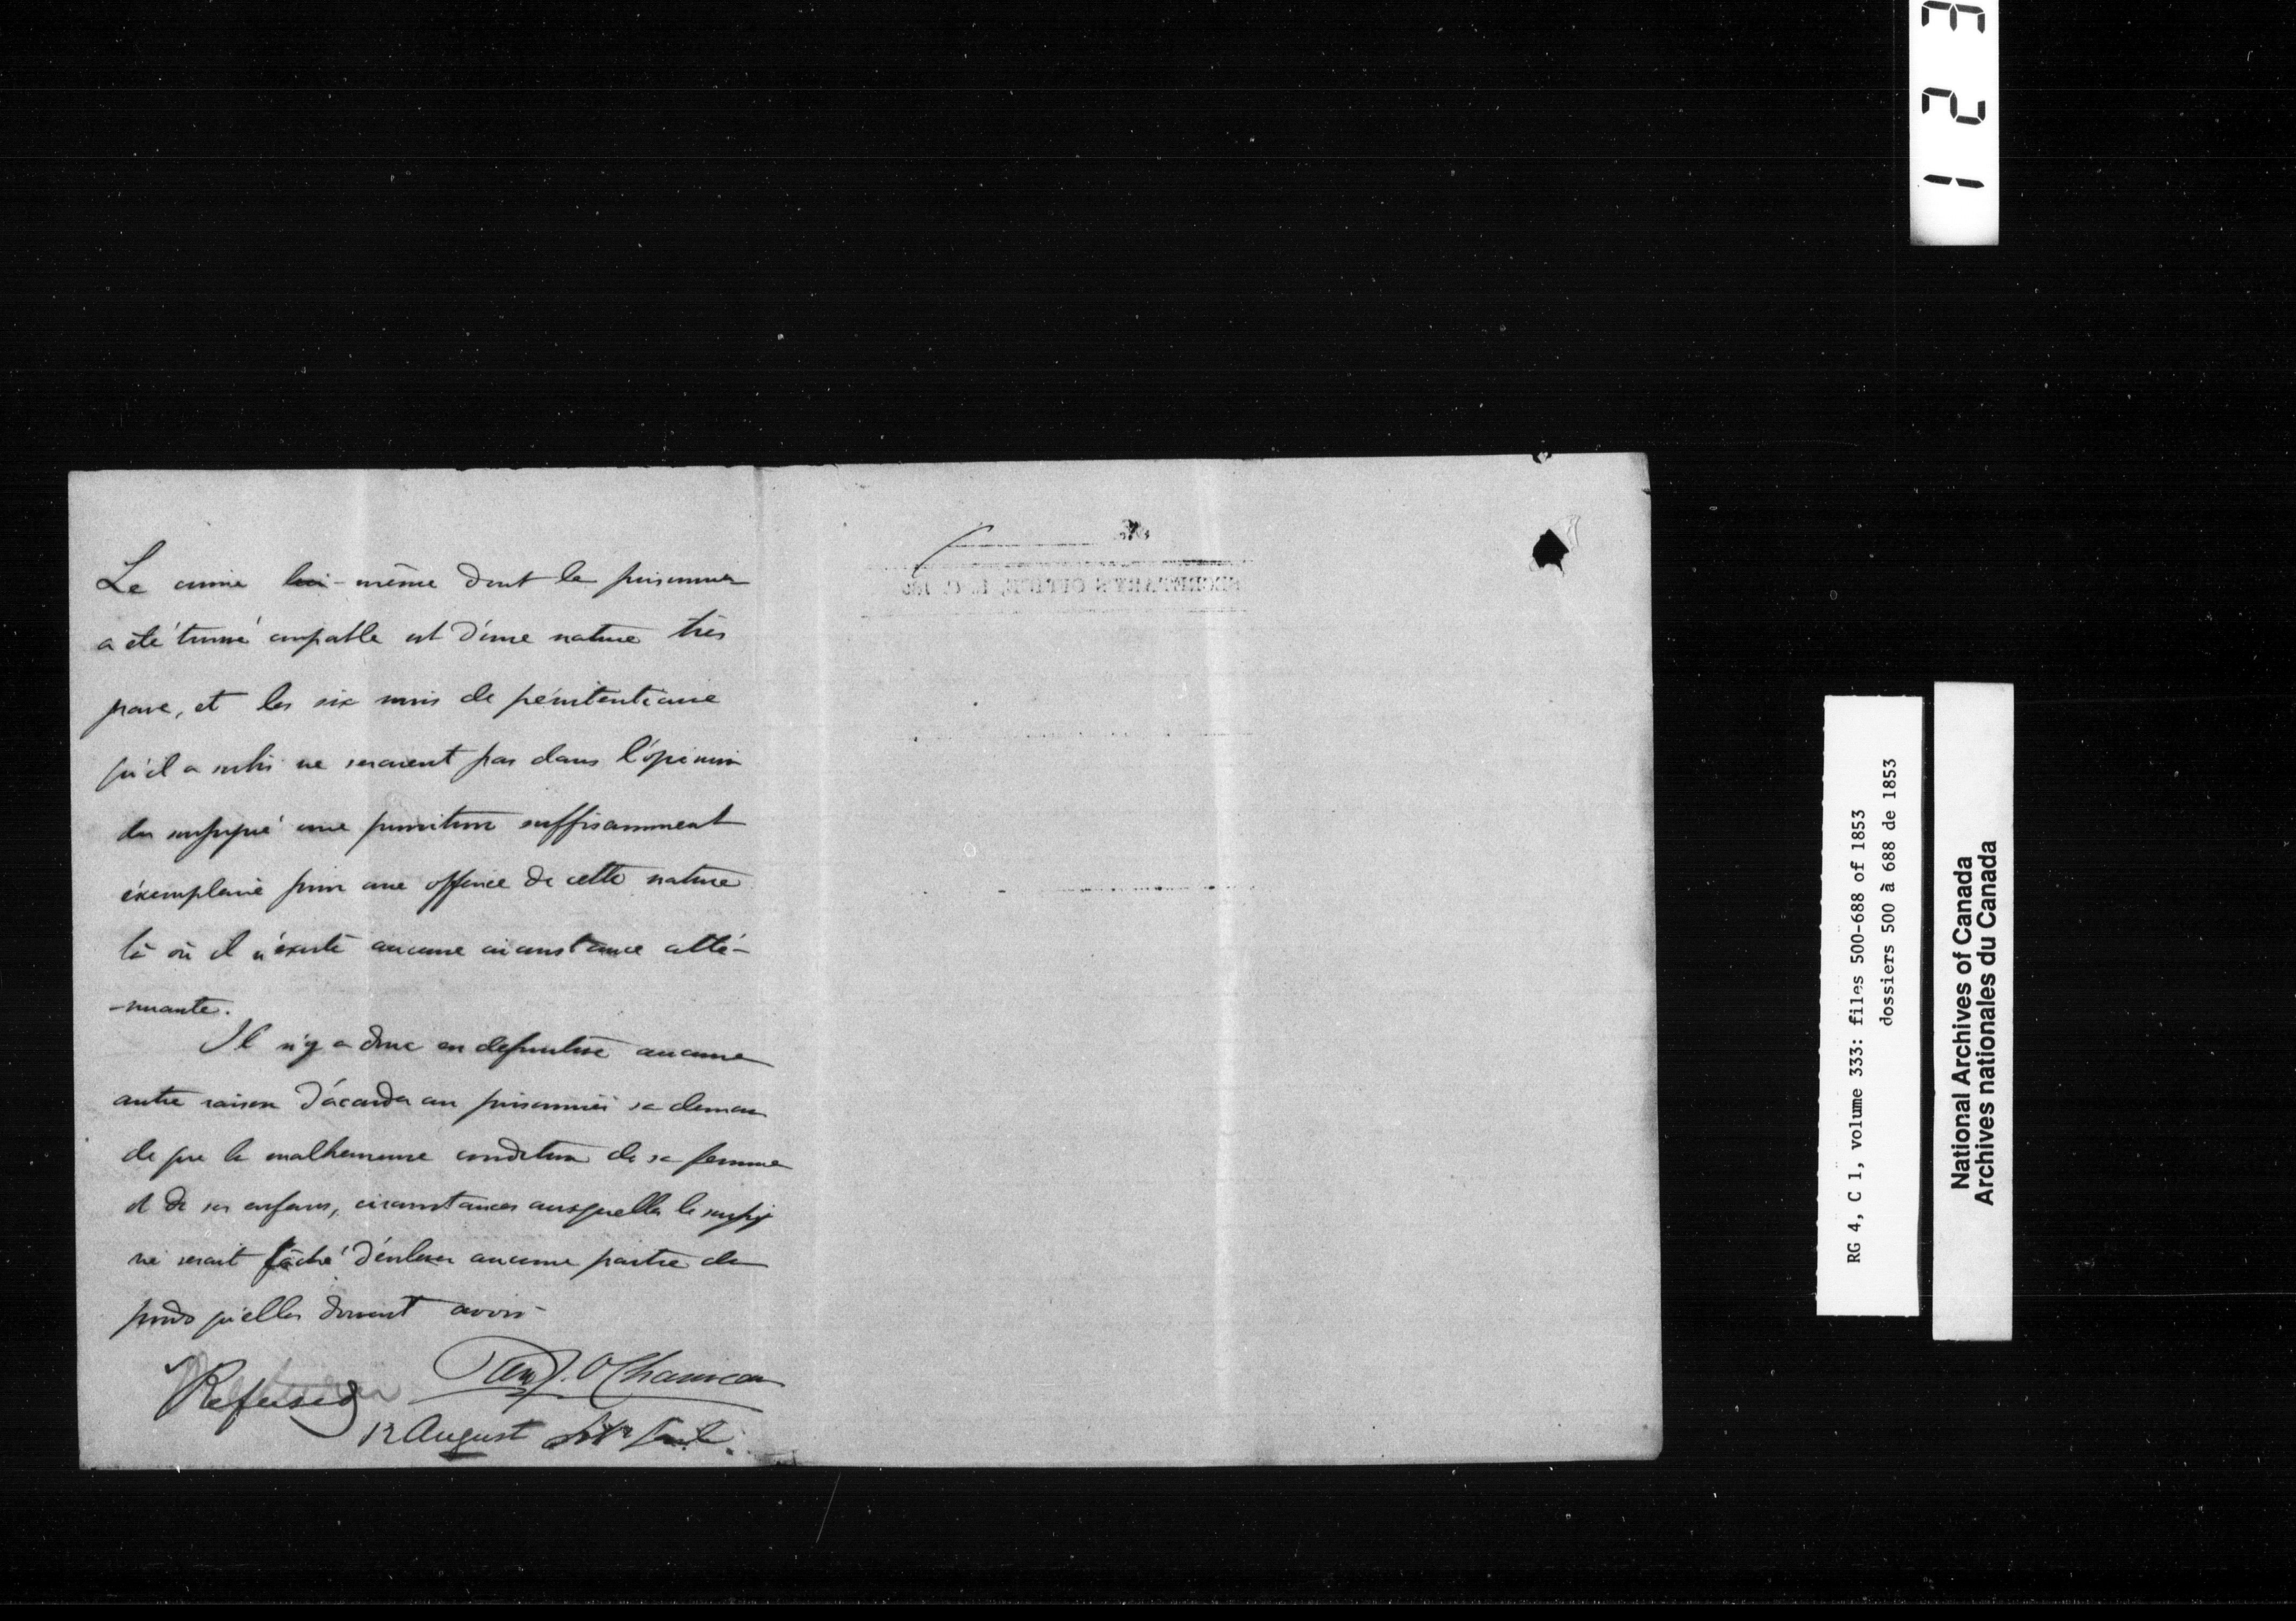 Le crime lui-même dont le prisonnier
a été trouvé coupable est d'une nature très
grave, et les six mois de pénitentiaire
qu'il a subis ne seraient pas dans l'opinion
du soussigné une punition suffisamment
éxemplaire pour une offence de cette nature
là où il n'existe aucune circonstance atté-
-nuante.
Il n'y a donc en définitive aucune
autre raison d'accorder au prisonnier sa deman
de que la malheureuse condition de sa femme
et de ses enfans, circonstances auxquelles le
ne serait fâché d'enlever aucune partie du
poids qu'elles doivent avoir-
Refused
P. J. O Chauveau
12 August
SECRETARY'S OFFICE, L. C. 185
1 2 3
RG 4, C 1, volume 333: files 500-688 of 1853
dossiers 500 à 688 de 1853
National Archives of Canada
Archives nationales du Canada